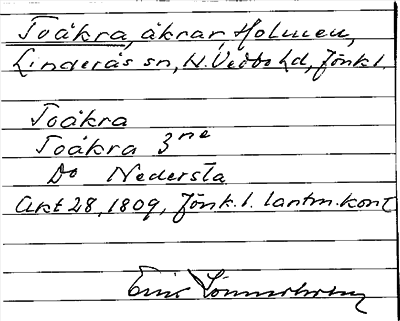 Toåkra, åkrar, Holmen,
Linderås sn, N. Vedbo hd, Jönk.l.
Toåkra
Toåkra 3ne
Do Nedersta
Akt 28, 1809, Jönk. l. lantm. kont
Erik